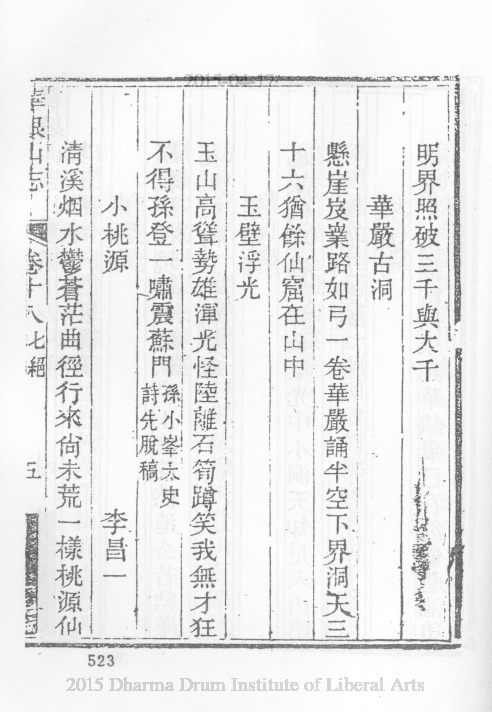 明界照破三千與大千
華嚴古洞
懸崖岌嶪路如弓一卷華嚴誦半空下界洞天三
十六猶餘仙窟在山中
玉壁浮光
玉山高聳勢雄渾光怪陸離石筍蹲笑我無才狂
不得孫登一嘯震蘇門
孫小峯太史
詩先脫稿
小桃源 李昌一
清溪烟水鬱蒼茫曲徑行來尙未荒一樣桃源仙
銀山志
卷十八 七絕
五
523
2015 Dharma Drum Institute of Liberal Arts